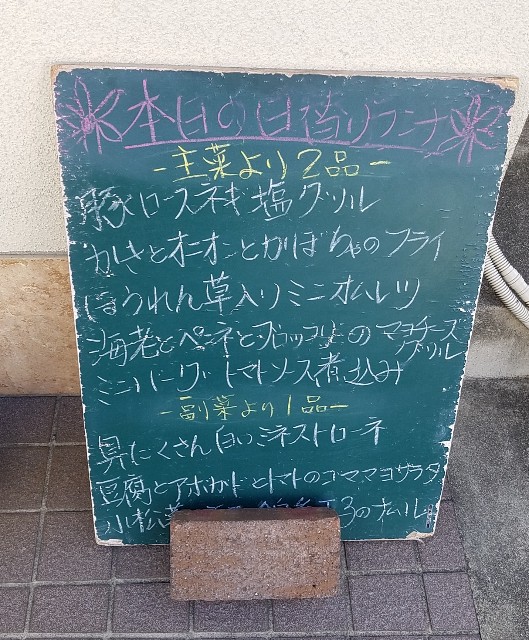 本日の日替りランチ
-主菜より2品-
豚ロースネギ塩グリル
かきとオニオンとかぼちゃのフライ
ほうれん草入りミニオムレツ
海老とペンネとブロッコリーのマヨチーズグリル
ミニバーグ トマトソース煮込み
-副菜より1品-
具だくさん白いミネストローネ
豆腐とアボカドとトマトのゴママヨサラダ
小松菜 の